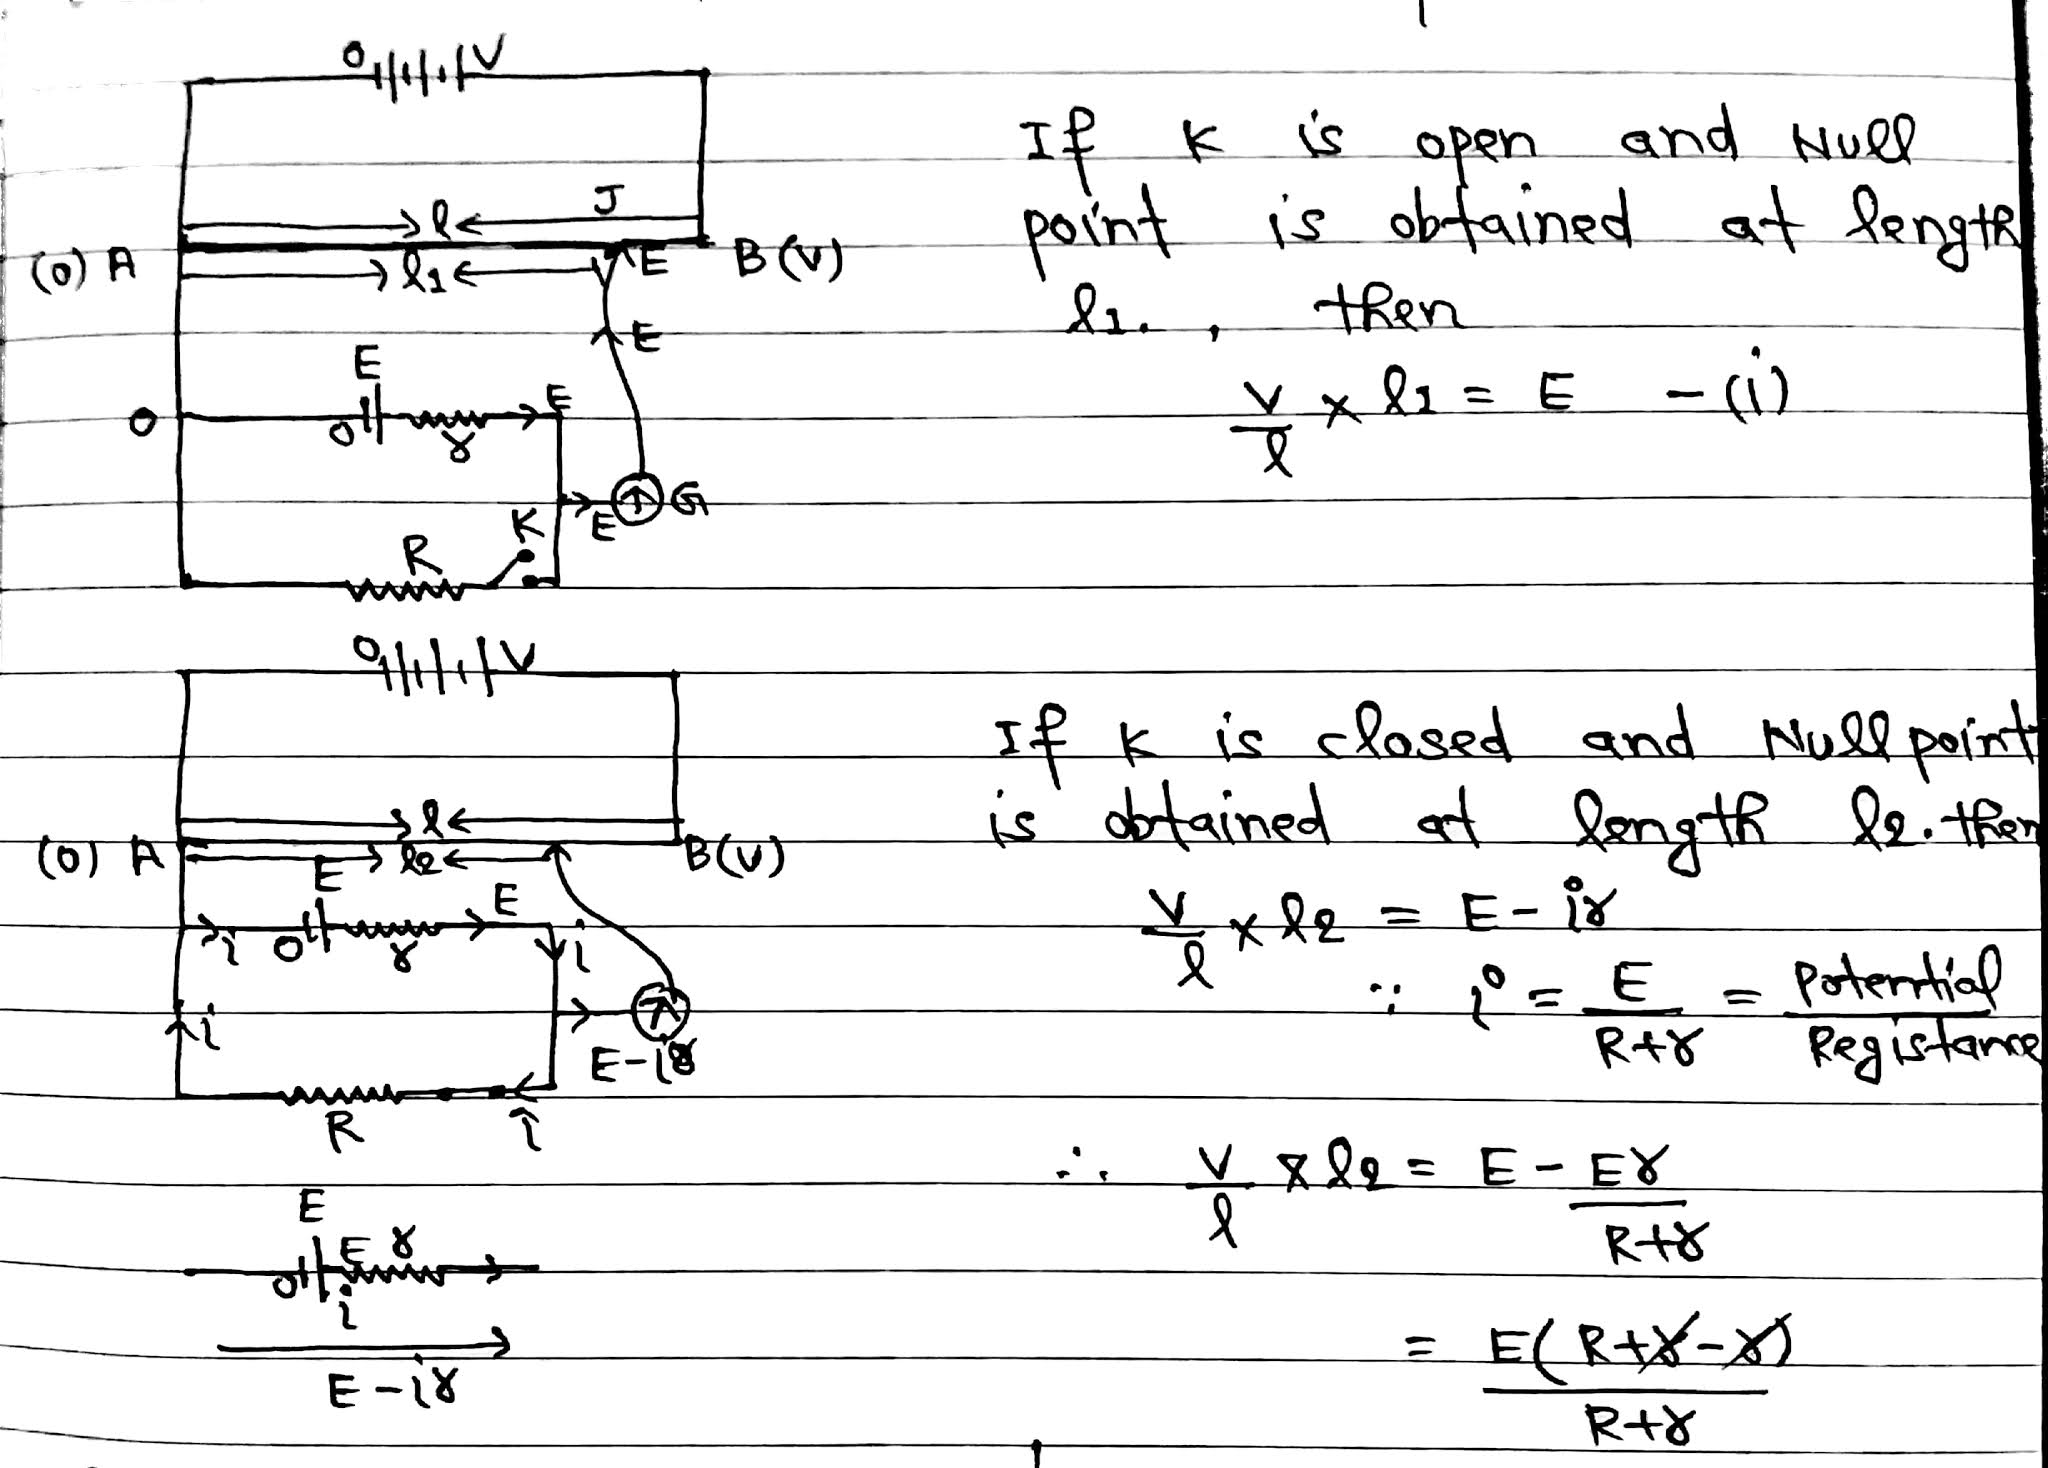 0 V
J
l
(0) A
l1
E
B (V)
E
E
E
0
0
r
K
E
G
R
If K is open and Null
point is obtained at length
l1. , then
V/l x l1 = E - (i)
0 V
l
(0) A
l2
B(V)
E
E
i
0
r
i
i
E-ir
R
i
E
E r
0
i
E-ir
If K is closed and Null point
is obtained at length l2. then
V/l x l2 = E - ir
∵ i = E/R+r = Potential/Registance
∴ V/l x l2 = E - Er/R+r
= E(R+r-r)/R+r